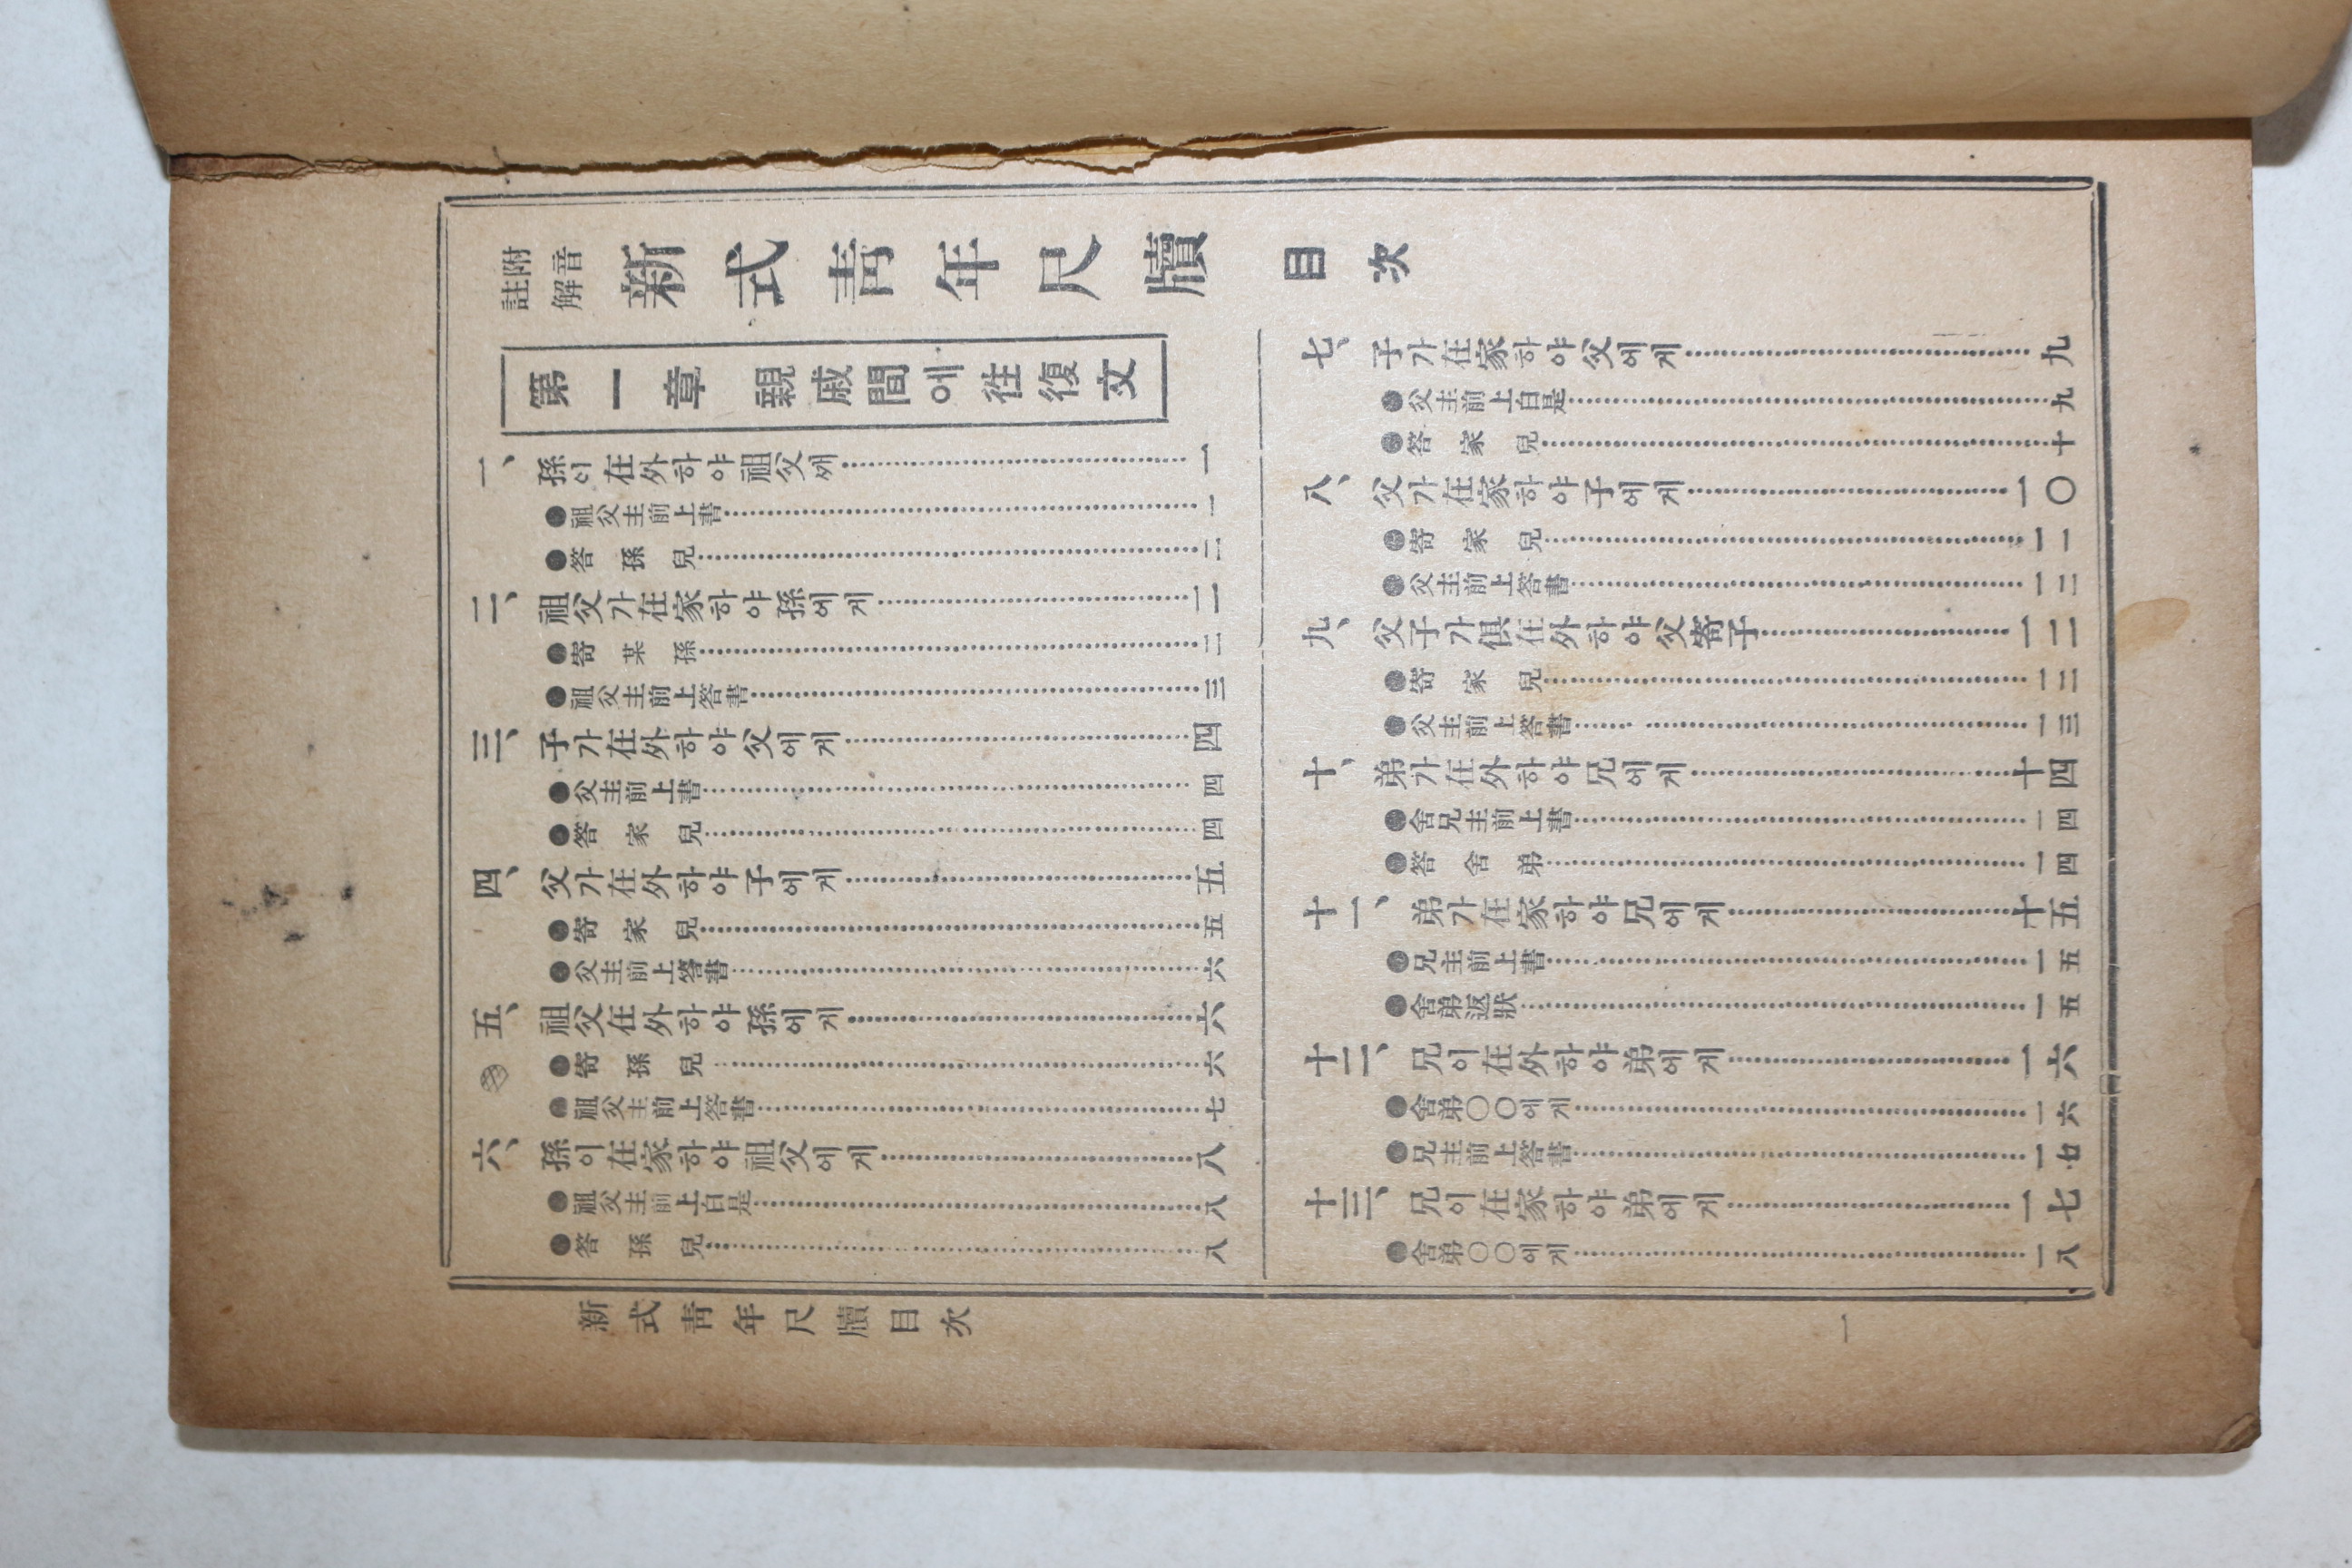 附音
註解
新式青年尺牘 目次
第一章 親戚間에徃復文
一、孫이在外하야祖父ᄭᅦ……一
●祖父主前上書……一
●答孫兒……二
二、祖父가在家하야孫에게……二
●寄某孫……二
●祖父主前上答書……三
三、子가在外하야父에게……四
●父主前上書……四
●答家兒……四
四、父가在外하야子에게……五
●寄家兒……五
●父主前上答書……六
五、祖父在外하야孫에게……六
●寄孫兒……六
●祖父主前上答書……七
六、孫이在家하야祖父에게……八
●祖父主前上白是……八
●答孫兒……八
七、子가在家하야父에게……九
●父主前上白是……九
●答家兒……十
八、父가在家하야子에게……一〇
●寄家兒……一一
●父主前上答書……一二
九、父子가俱在外하야父寄子……一二
●寄家兒……一二
●父主前上答書……一三
十、弟가在外하야兄에게……十四
●舍兄主前上書……一四
●答舍弟……一四
十一、弟가在家하야兄에게……十五
●兄主前上書……一五
●舍弟返狀……一五
十二、兄이在外하야弟에게……一六
●舍弟〇〇에게……一六
●兄主前上答書……一七
十三、兄이在家하야弟에게……一七
●舍弟〇〇에게……一八
新式靑年尺牘目次
一